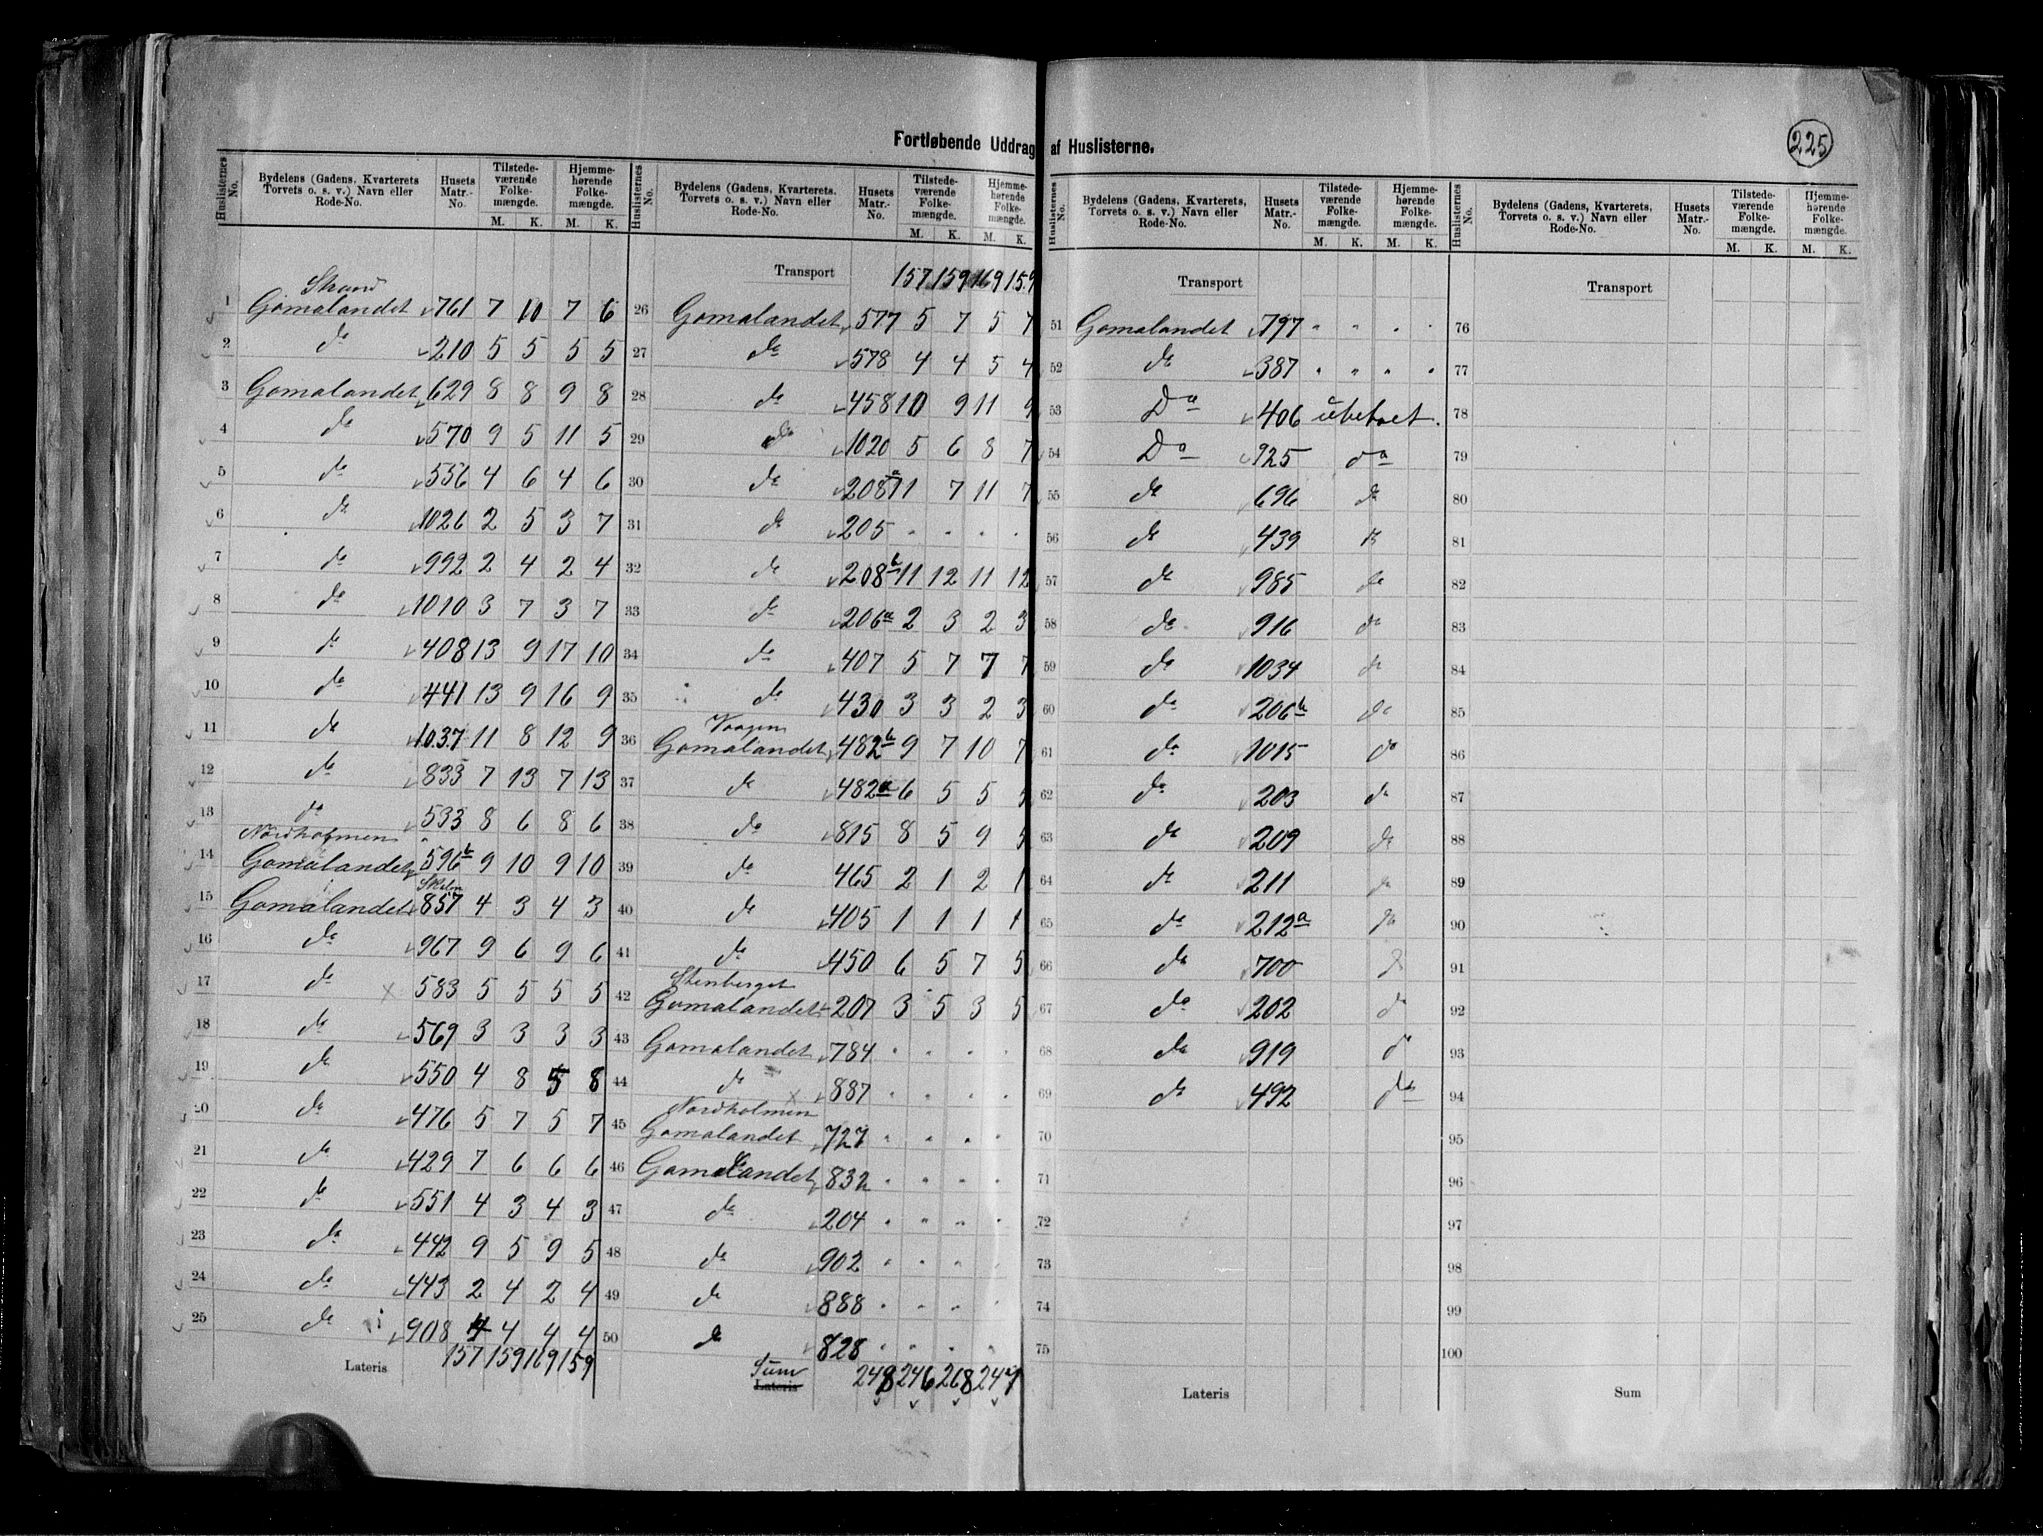 Fortløbende Uddrag af Huslisterne.
225
Huslisternes No. | Bydelens (Gadens, Kvarterets Torvets o. s. v.) Navn eller Rode-No. | Husets Matr.-No. | Tilstedeværende Folkemængde. M. K. | Hjemmehørende Folkemængde. M. K.
Strand
1 Gomalandet 761 7 10 7 6
2 do 210 5 5 5 5
3 Gomalandet 629 8 8 9 8
4 do 570 9 5 11 5
5 do 556 4 6 4 6
6 do 1026 2 5 3 7
7 do 992 2 4 2 4
8 do 1010 3 7 3 7
9 do 408 13 9 17 10
10 do 441 13 9 16 9
11 do 1037 11 8 12 9
12 do 833 7 13 7 13
13 do 533 8 6 8 6
Nordholmen
14 Gomalandet 596b 9 10 9 10
15 Gomalandet 857 4 3 4 3
16 do 967 9 6 9 6
17 do 583 5 5 5 5
18 do 569 3 3 3 3
19 do 550 4 8 5 8
20 do 476 5 7 5 7
21 do 429 7 6 6 6
22 do 551 4 3 4 3
23 do 442 9 5 9 5
24 do 443 2 4 2 4
25 do 908 4 4 4 4
Lateris 157 159 169 159
Huslisternes No. | Bydelens (Gadens, Kvarterets. Torvets o. s. v.) Navn eller Rode-No. | Husets Matr.-No. | Tilstedeværende Folkemængde. M. K. | Hjemmehørende Folkemængde. M. K.
Transport 157 159 169 159
26 Gomalandet 577 5 7 5 7
27 do 578 4 4 5 4
28 do 458 10 9 11 9
29 do 1020 5 6 8 7
30 do 208a 11 7 11 7
31 do 205 " " " "
32 do 208b 11 12 11 12
33 do 206a 2 3 2 3
34 do 407 5 7 7 7
35 do 430 3 3 2 3
Vaagen
36 Gomalandet 482b 9 7 10 7
37 do 482a 6 5 5 5
38 do 815 8 5 9 5
39 do 465 2 1 2 1
40 do 405 1 1 1 1
41 do 450 6 5 7 5
Stenberget
42 Gomalandet 207 3 5 3 5
43 Gomalandet 784 " " " "
44 do 887 " " " "
Nordholmen
45 Gomalandet 727 " " " "
46 Gomalandet 832 " " " "
47 do 204 " " " "
48 do 902 " " " "
49 do 888 " " " "
50 do 828 " " " "
Sum
Lateris 248 246 268 247
Huslisternes No. | Bydelens (Gadens, Kvarterets, Torvets o. s. v.) Navn eller Rode-No. | Husets Matr.-No. | Tilstedeværende Folkemængde. M. K. | Hjemmehørende Folkemængde. M. K.
Transport
51 Gomalandet 797 " " " "
52 do 387 " " " "
53 Do 406 ubeboet.
54 Do 925 do
55 do 696 do
56 do 439 do
57 do 985 do
58 do 916 do
59 do 1034 do
60 do 206b do
61 do 1015 do
62 do 203 do
63 do 209 do
64 do 211 do
65 do 212a do
66 do 700 do
67 do 202 do
68 do 919 do
69 do 492 do
70
71
72
73
74
75
Lateris
Huslisternes No. | Bydelens (Gadens, Kvarterets, Torvets o. s. v.) Navn eller Rode-No. | Husets Matr.-No. | Tilstedeværende Folkemængde. M. K. | Hjemmehørende Folkemængde. M. K.
Transport
76
77
78
79
80
81
82
83
84
85
86
87
88
89
90
91
92
93
94
95
96
97
98
99
100
Sum